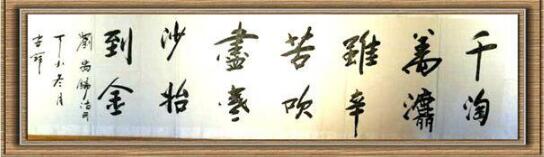 千淘
萬漉
雖辛
苦吹
盡寒
沙始
到金
劉禹錫詩句
丁酉冬月
吉祥